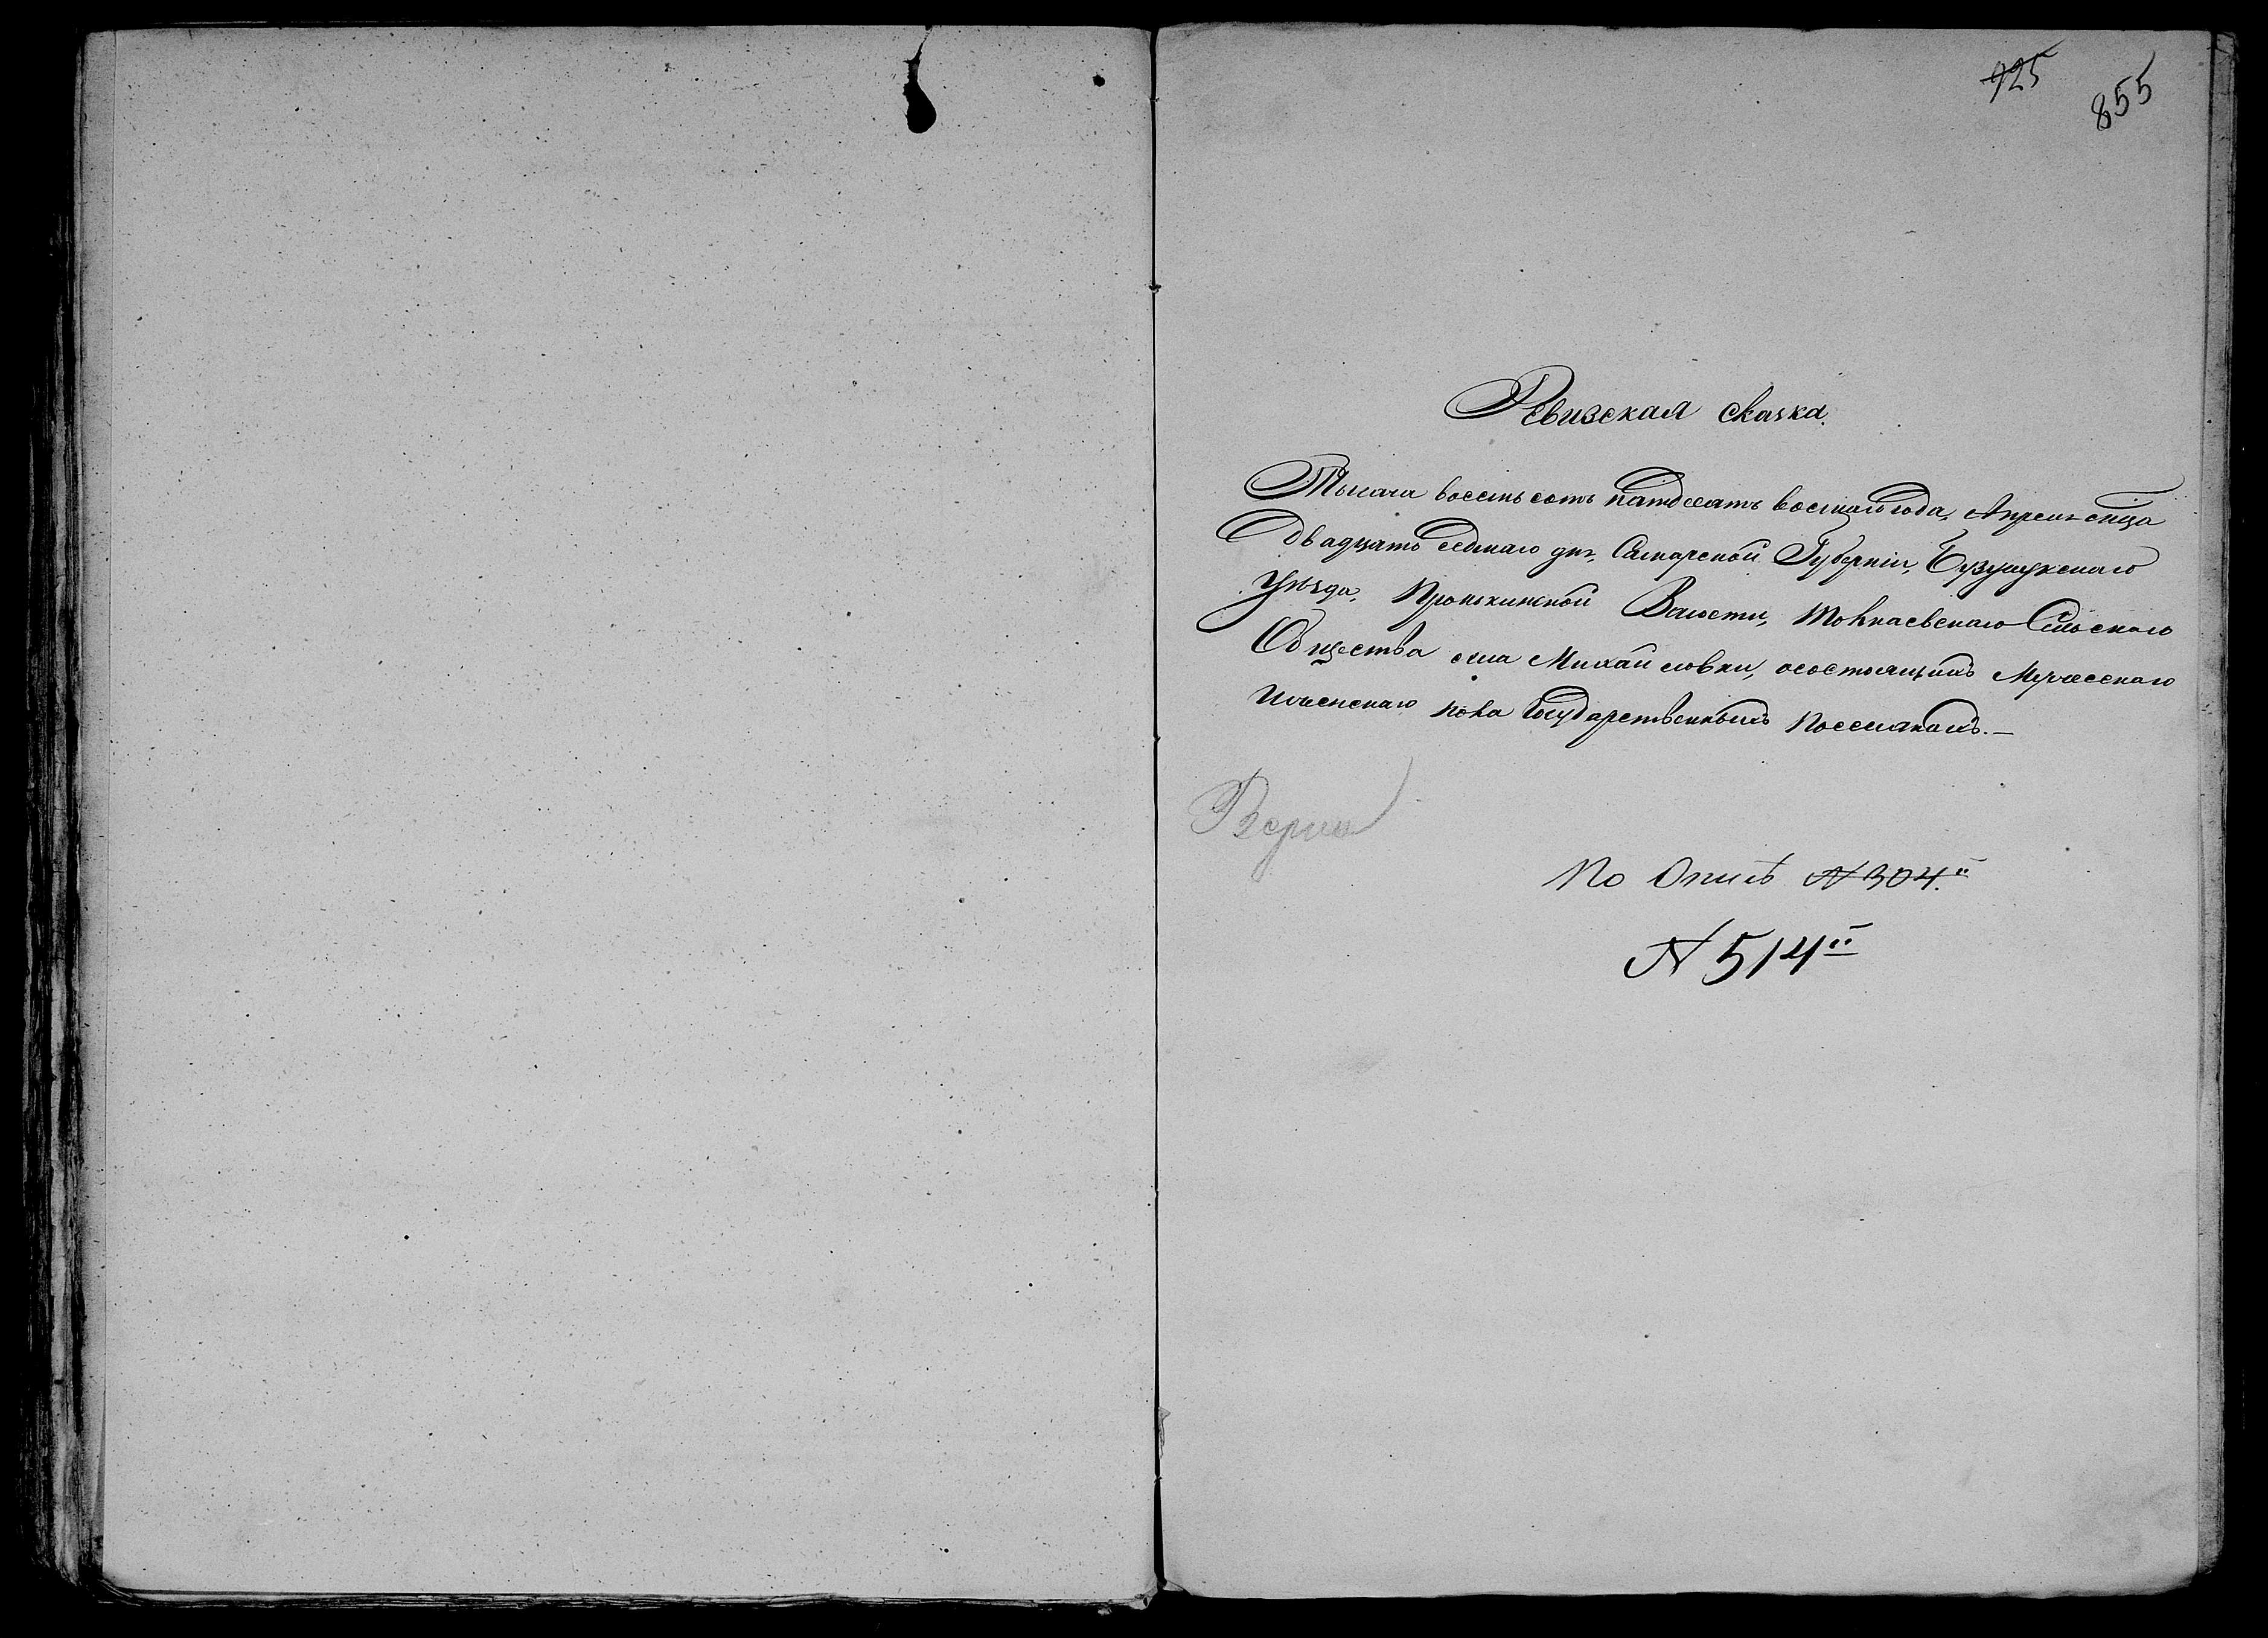 925 855
Ревизская сказка.
Тысяча восемь сотъ пятдесятъ восмаго года, Апреля мца
двадцать седмаго дня, Самарской Губерніи, Бузулукскаго
Уѣзда, Пронькинской Волости, Токмаевскаго Сельскаго
Общества села Михайловки, осостоящихъ Мужескаго
иженскаго пола Государственныхъ Поселянахъ.—
Верно
По Описѣ № 304.й
№ 514й